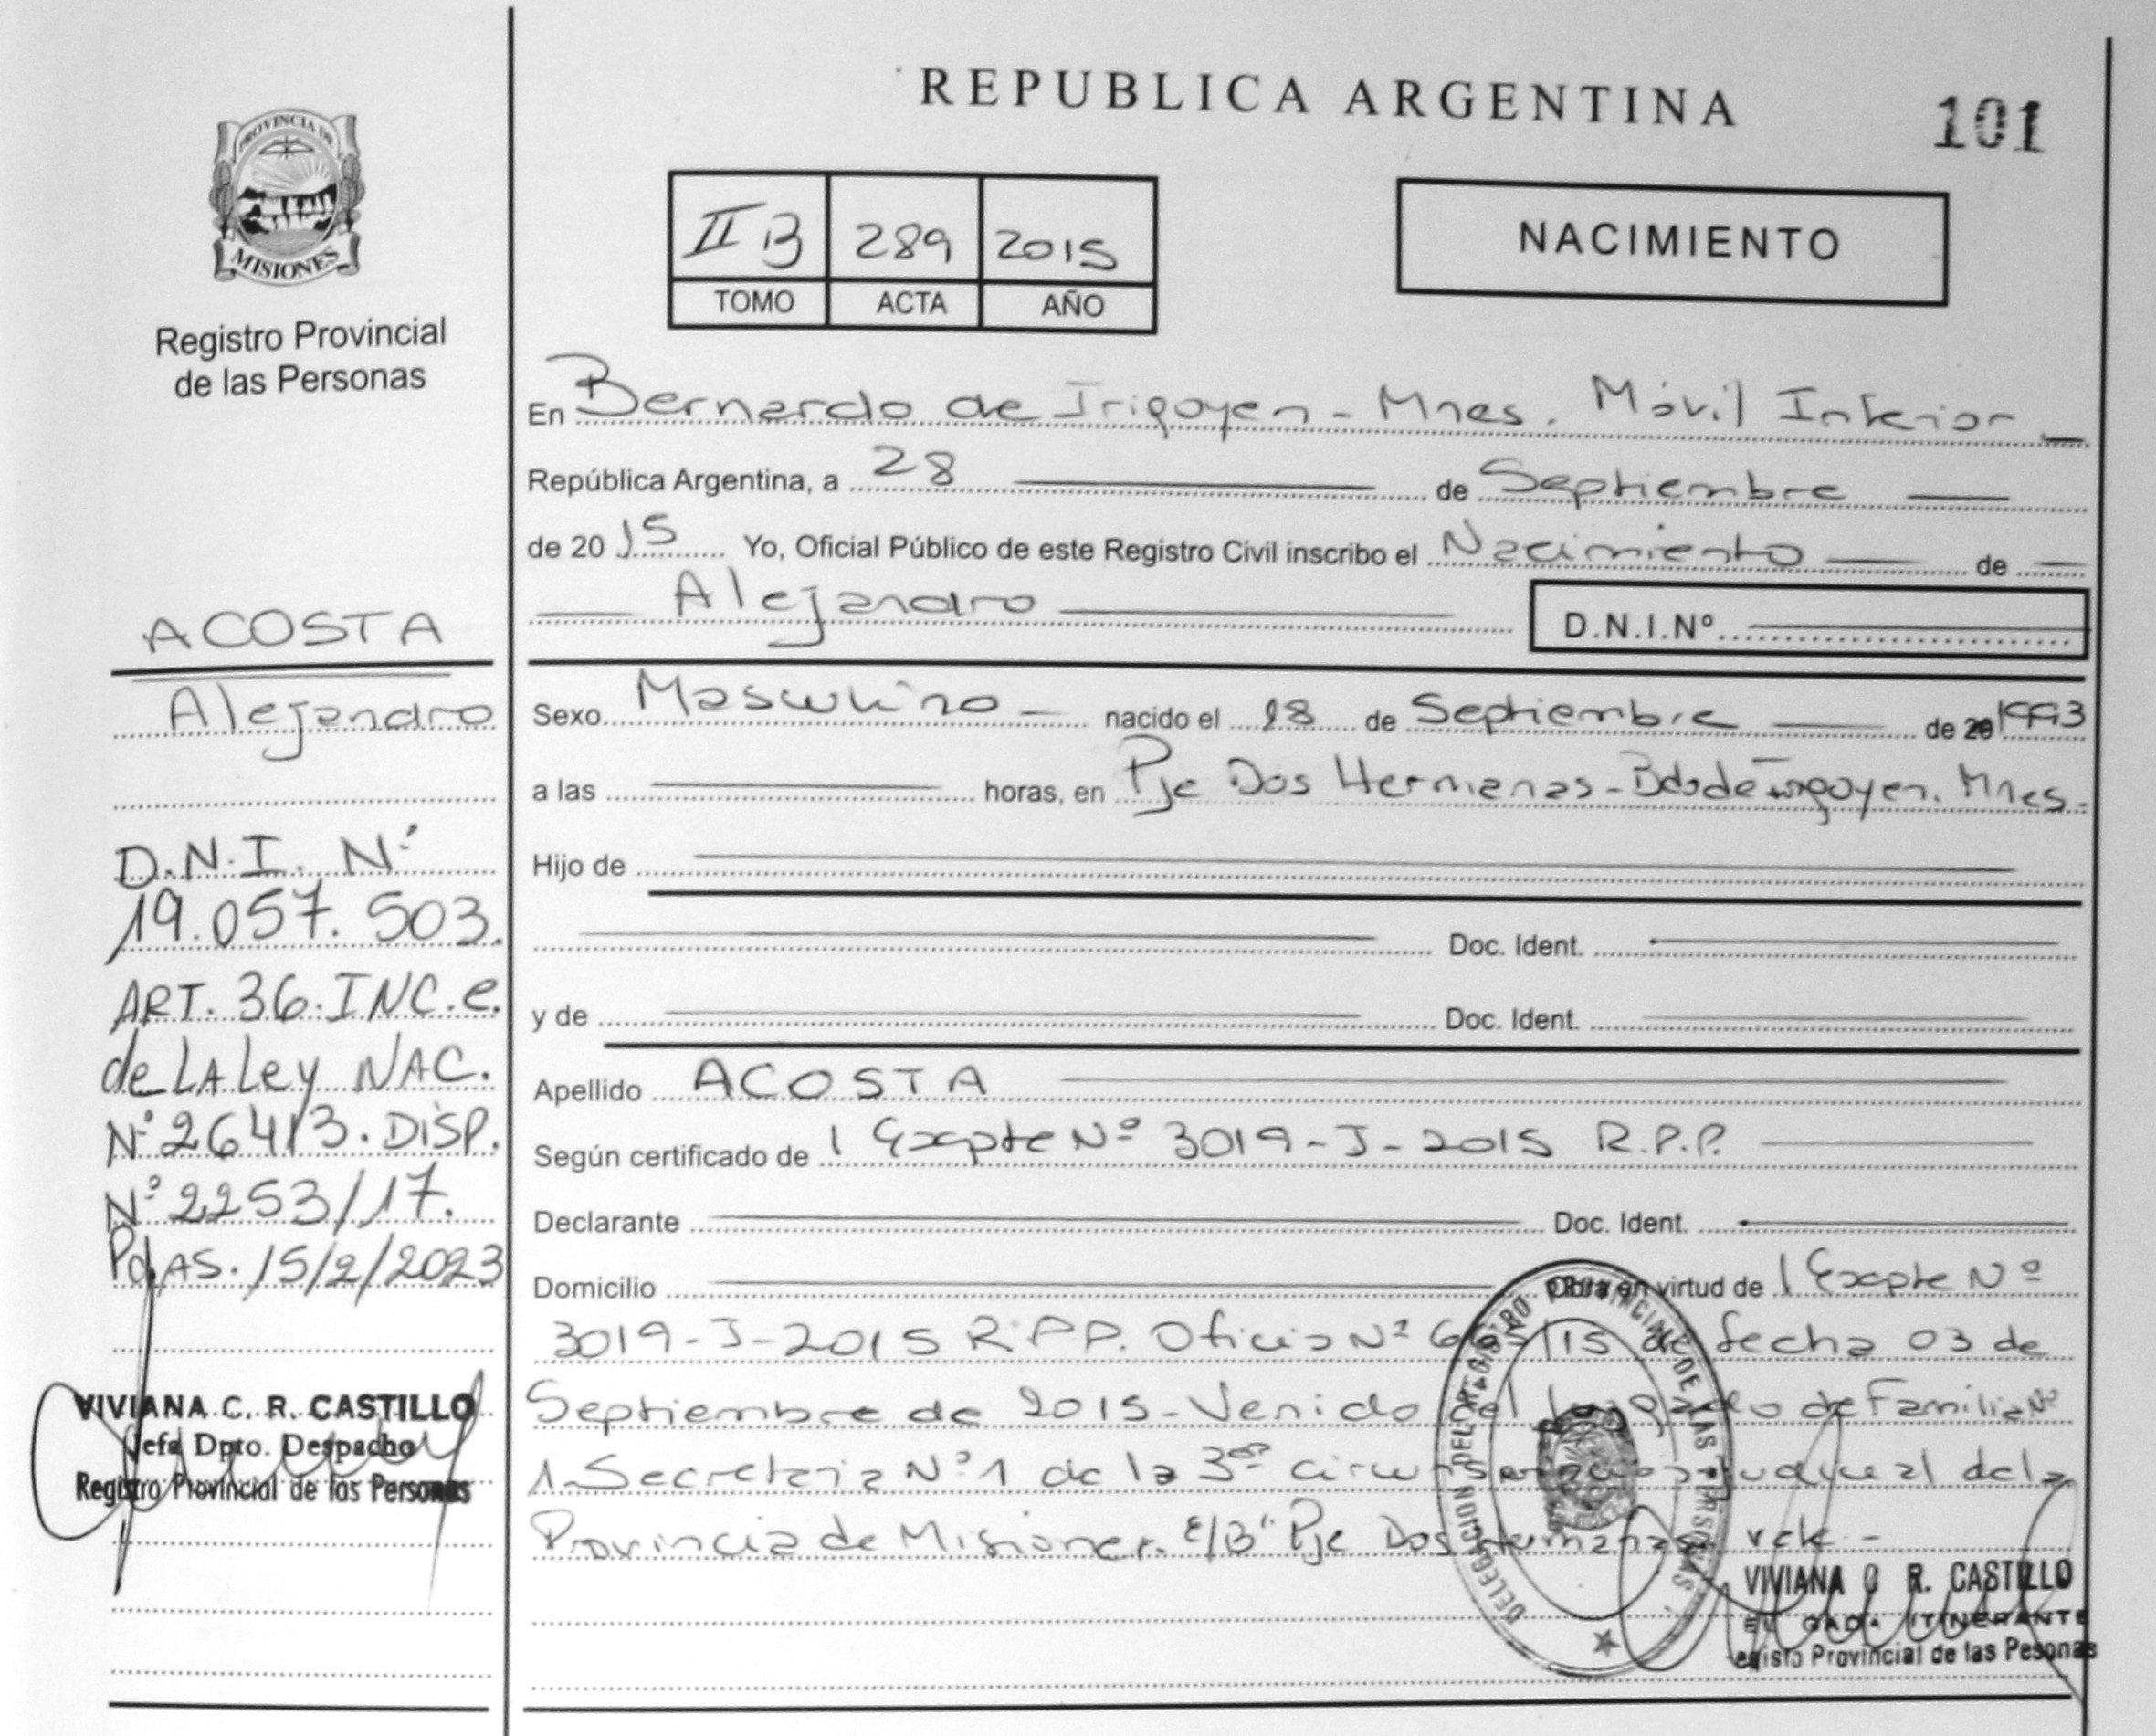 REPUBLICA ARGENTINA
101
PROVINCIA DE
MISIONES
Registro Provincial
de las Personas
II B 289 2015
TOMO ACTA AÑO
NACIMIENTO
En Bernardo de Irigoyen - Mnes. Móvil Interior
República Argentina, a 28 de Septiembre
de 2015 Yo, Oficial Público de este Registro Civil inscribo el Nacimiento de
Alejandro
D.N.I.Nº
ACOSTA
Alejandro
D.N.I. Nº
19.057.503.
ART. 36. INC. e.
de LA Ley NAC.
Nº 26413. DISP.
Nº 2253/17.
PdAS. 15/2/2023
VIVIANA C. R. CASTILLO
Jefa Dpto. Despacho
Registro Provincial de las Personas
Sexo Masculino nacido el 18 de Septiembre de 1993
a las horas, en Pje Dos Hermanas - Bdo de Irigoyen. Mnes.
Hijo de
Doc. Ident.
y de Doc. Ident.
Apellido ACOSTA
Según certificado de Expte Nº 3019-J-2015 R.P.P.
Declarante Doc. Ident.
Domicilio Obra en virtud de Expte Nº
3019-J-2015 R.P.P. Oficio Nº /15 de fecha 03 de
Septiembre de 2015 - Venido del Juzgado de Familia Nº
1 - Secretaria Nº 1 de la 3ra circunscripcion judicial de la
Provincia de Misiones. Pje Dos Hermanas
DELEGACION DEL REGISTRO PROVINCIAL DE LAS PERSONAS
VIVIANA C R. CASTILLO
ITINERANTE
egisto Provincial de las Pesonas